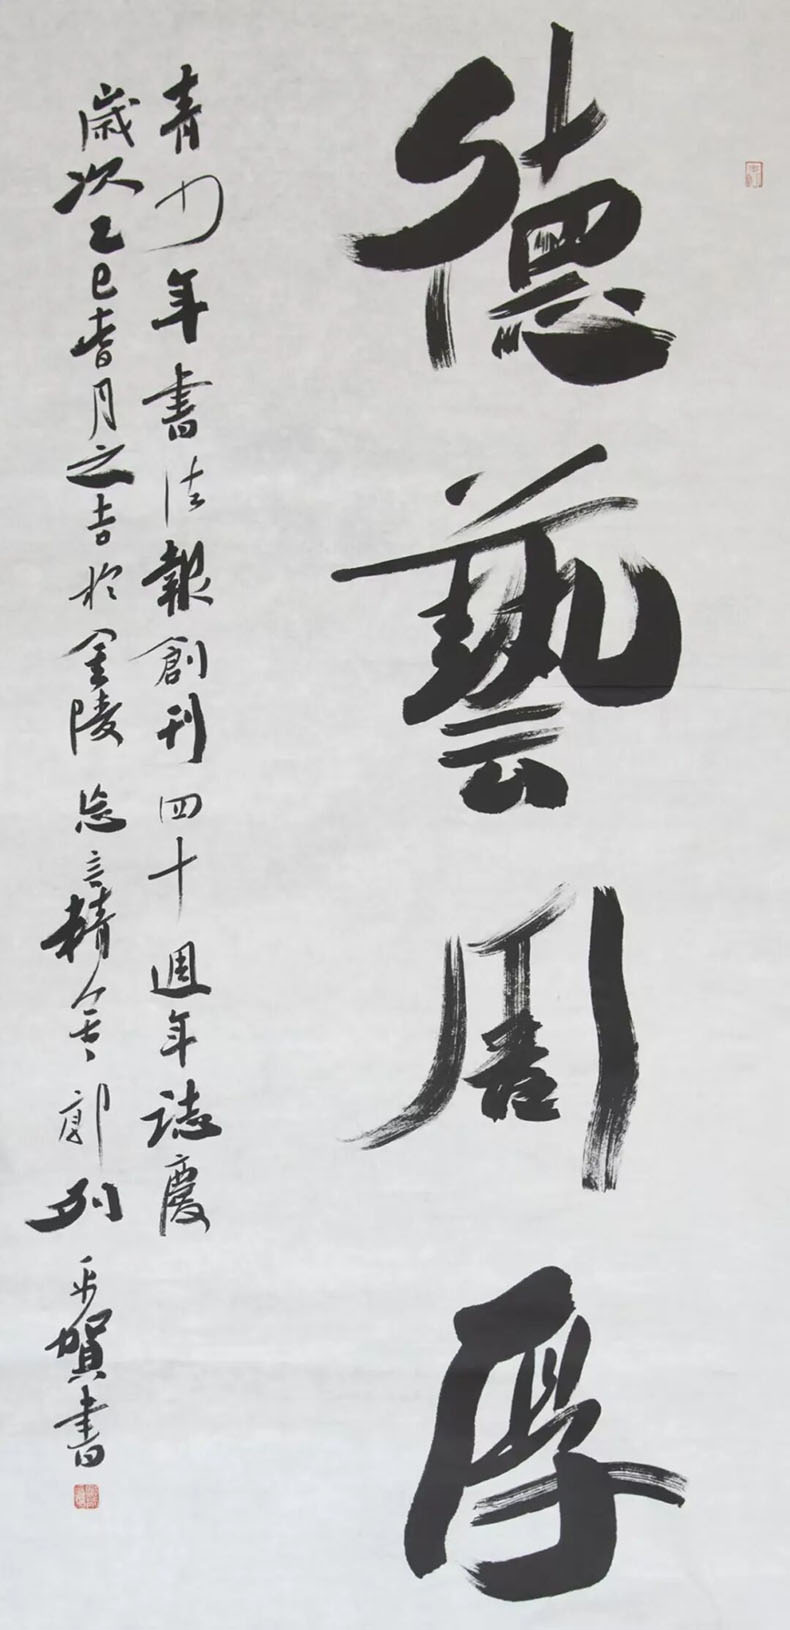 德藝周厚
青少年書法報創刊四十週年誌慶
歲次乙巳春月之吉於金陵 言精舍郭列平賀書